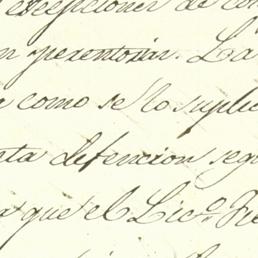 excepciones de con
n perentorias. La
como se lo suplic
ta detencion seg
a que el Lic.º Fi